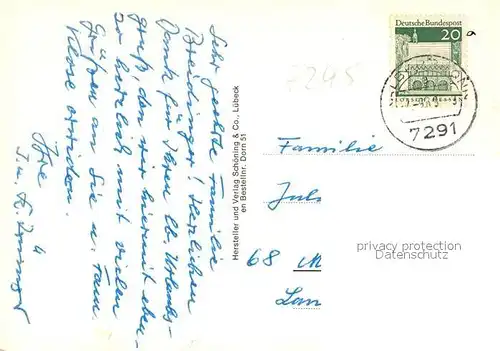 Sehr geehrte Familie
Breidinger! Herzlichen
Dank für Ihren lb. Urlaubs-
gruß, den wir hiermit eben-
so herzlich mit vielen
Grüßen an Sie u. Fam.
Klose erwidern.
Ihre
Hersteller und Verlag Schöning & Co., Lübeck
en Bestellnr. Dorn 51
7245
Deutsche Bundespost
20
7291
Familie
Jul
68 M
Lan
privacy protection
Datenschutz